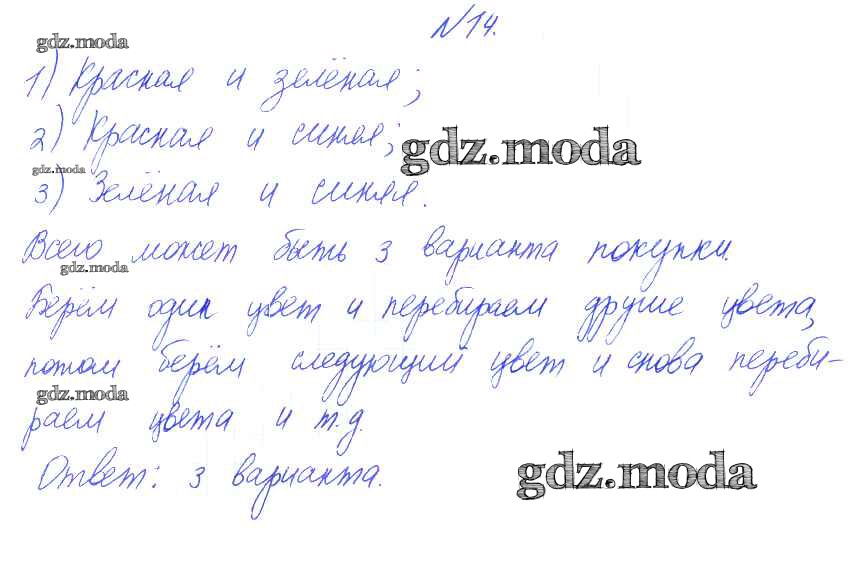 №14.
gdz.moda
1) Красная и зелёная;
2) Красная и синяя;
gdz.moda
gdz.moda
3) Зелёная и синяя.
Всего может быть 3 варианта покупки.
gdz.moda
Берём один цвет и перебираем другие цвета,
потом берём следующий цвет и снова переби-
gdz.moda
раем цвета и т.д.
Ответ: 3 варианта.
gdz.moda